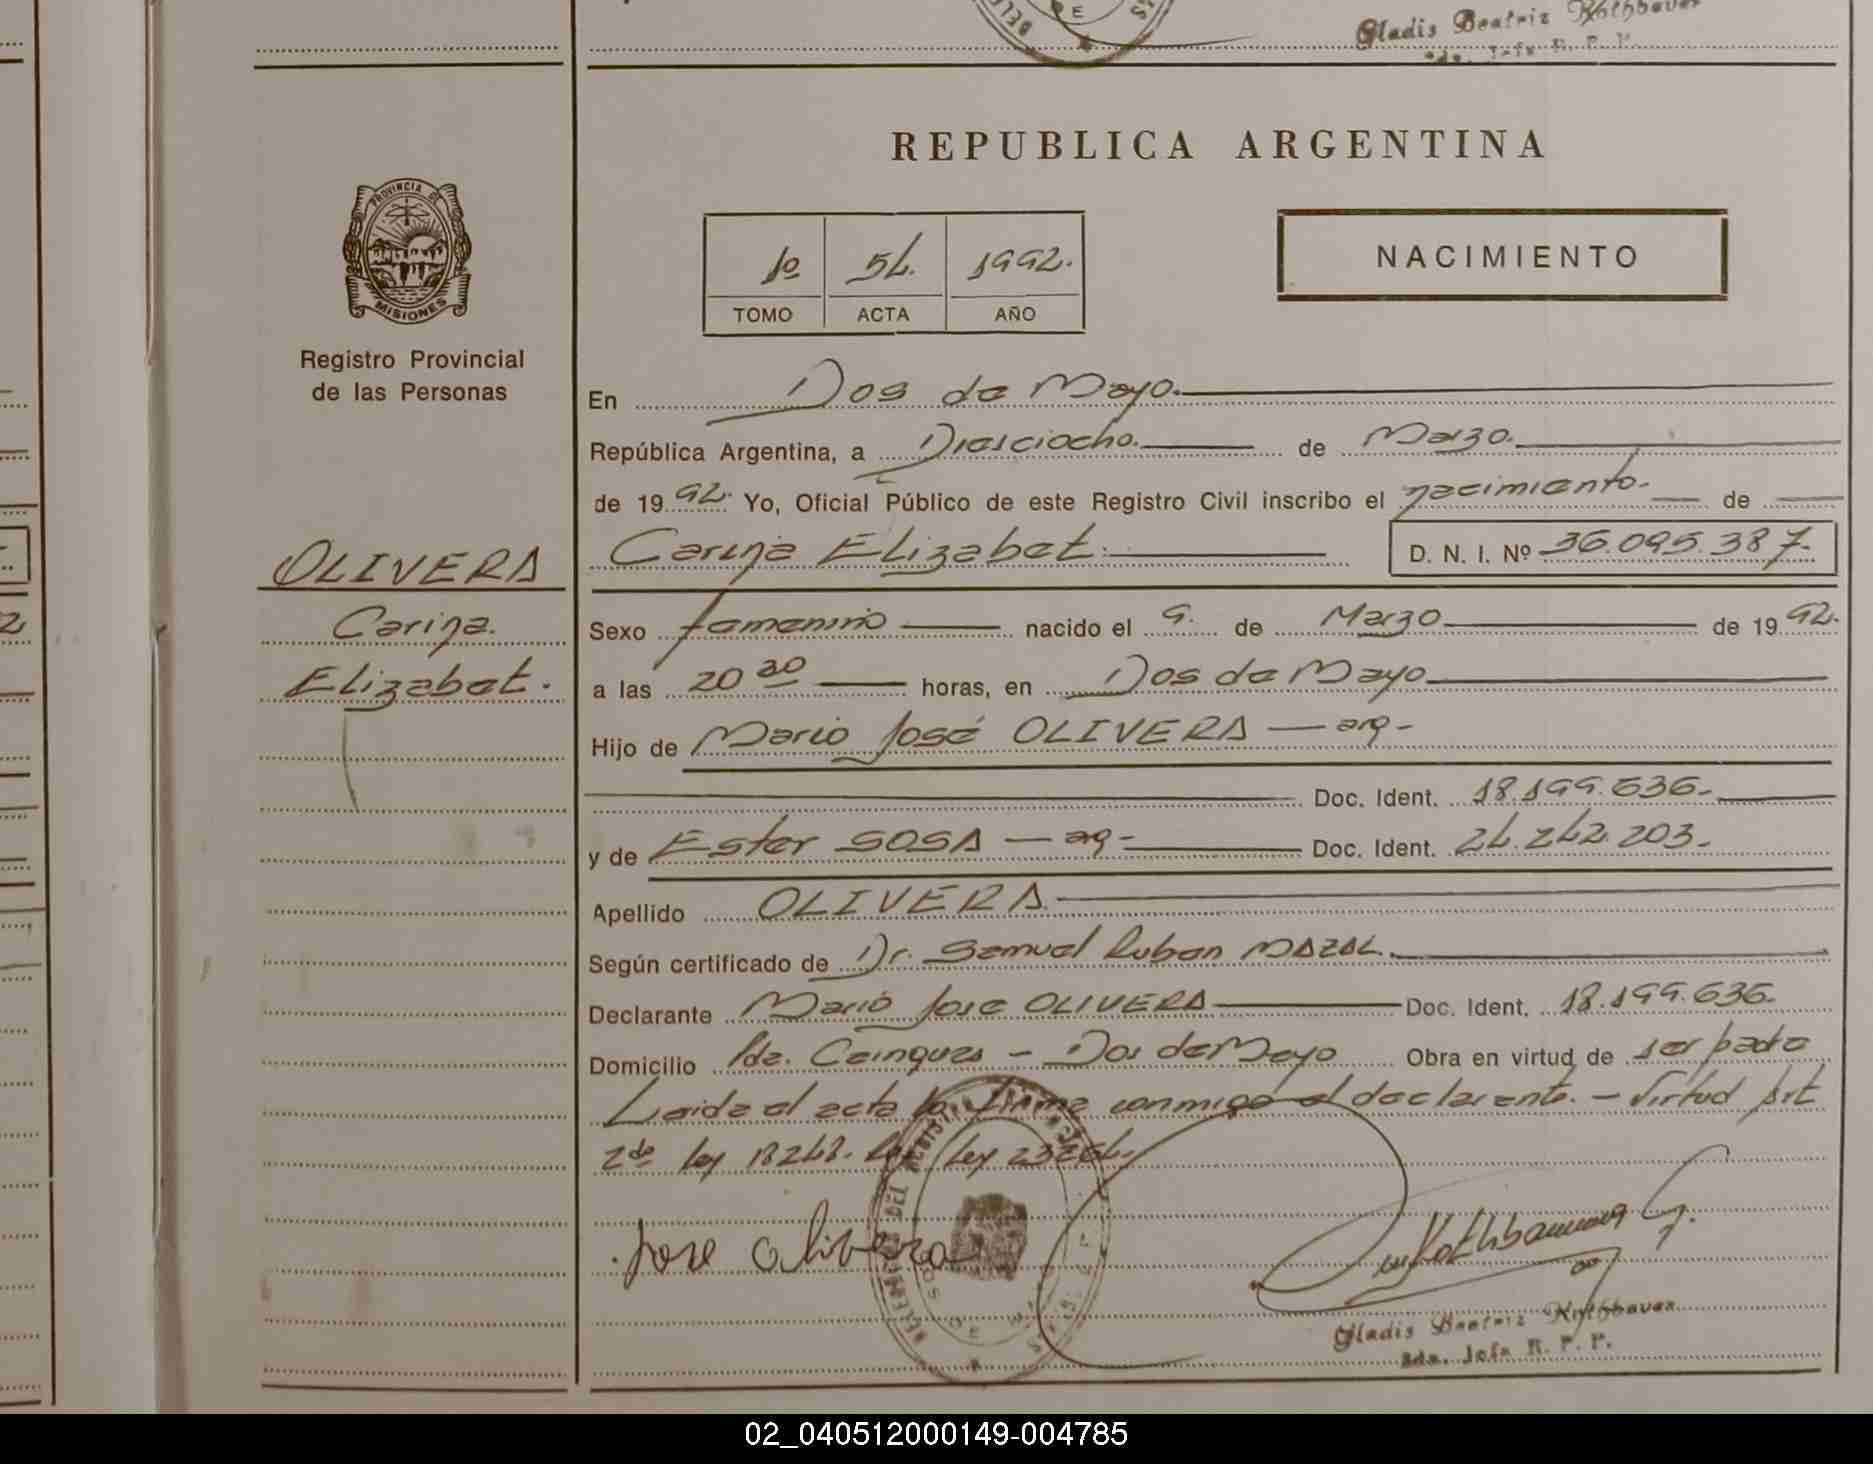 Gladis Beatriz Rothbauer
PROVINCIA DE
MISIONES
Registro Provincial
de las Personas
REPUBLICA ARGENTINA
1º 54. 1992.
TOMO ACTA AÑO
NACIMIENTO
En Dos de Mayo.
República Argentina, a Diesciocho. de Marzo.
de 19 92. Yo, Oficial Público de este Registro Civil inscribo el nacimiento. de
OLIVERA
Carina Elizabet. D. N. I. Nº 36.095.387.
Carina.
Sexo femenino nacido el 9. de Marzo de 19 92.
Elizabet.
a las 20 30 horas, en Dos de Mayo
Hijo de Mario José OLIVERA — arg-
Doc. Ident. 18.199.636.
y de Ester SOSA — arg- Doc. Ident. 24.242.203.
Apellido OLIVERA
Según certificado de Dr. Samuel Ruben MAZAL.
Declarante Mario Jose OLIVERA Doc. Ident. 18.199.636.
Domicilio Pda. - Dos de Mayo Obra en virtud de ser padre
Leida el acta la firma conmigo el declarante. - Virtud Art
2do ley 18248. ley 23264.
Jose Olivera
Gladis Beatriz Rothbauer
Sda. Jefa R. P. P.
02_040512000149-004785